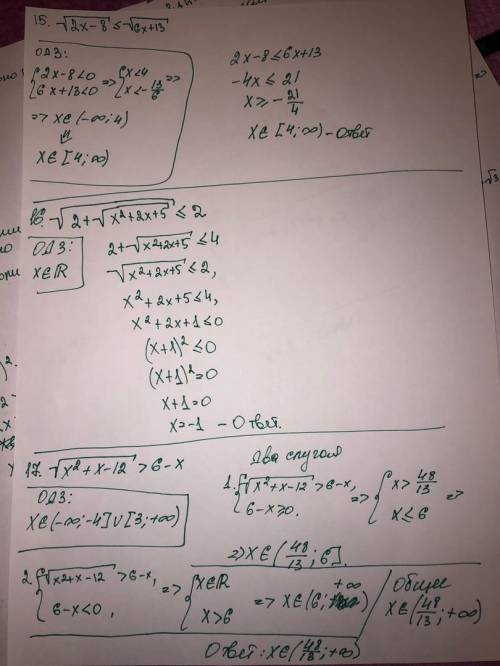 15. √(2x-8) ≤ √(6x+13)
ОДЗ:
{2x-8<0 => {x<4 =>
{6x+13<0 {x<-13/6
=> x∈(-∞;4)
⇓
x∈[4;∞)
2x-8≤6x+13
-4x≤21
x≥-21/4
x∈[4;∞) - Ответ
16. √(2+√(x²+2x+5)) ≤ 2
ОДЗ:
x∈R
2+√(x²+2x+5) ≤ 4
√(x²+2x+5) ≤ 2,
x²+2x+5≤4,
x²+2x+1≤0
(x+1)²≤0
(x+1)²=0
x+1=0
x=-1 - Ответ.
17. √(x²+x-12) > 6-x
ОДЗ:
x∈(-∞;-4]∪[3;+∞)
Два случая
1. {√(x²+x-12) > 6-x, => {x>48/13 =>
{6-x≥0. {x≤6
=> x∈(48/13;6]
2. {√(x²+x-12) > 6-x, => {x∈R => x∈(6;+∞)
{6-x<0, {x>6
Общее
x∈(48/13;+∞)
Ответ: x∈(48/13;+∞)